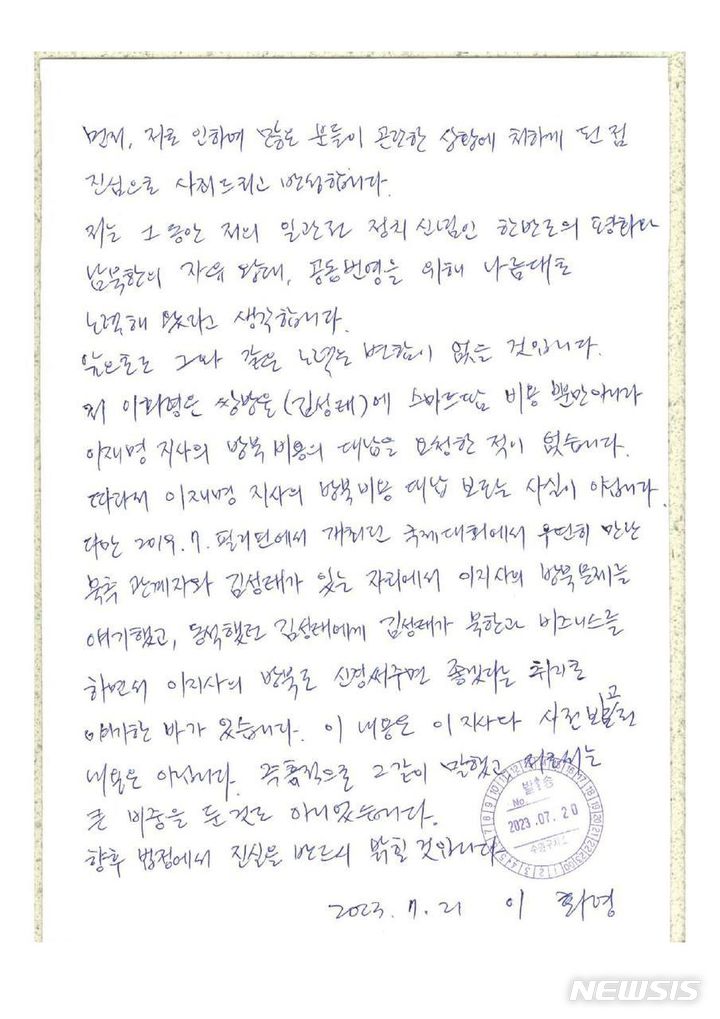 먼저, 저로 인하여 많은 분들이 곤란한 상황에 처하게 된 점
진심으로 사죄드리고 반성합니다.
저는 그 동안 저의 일관된 정치신념인 한반도의 평화와
남북한의 자유 왕래, 공동번영을 위해 나름대로
노력해 왔다고 생각합니다.
앞으로도 그와 같은 노력는 변함이 없을 것입니다.
저 이화영은 쌍방울(김성태)에 스마트팜 비용 뿐만아니라
이재명 지사의 방북비용의 대납을 요청한 적이 없습니다.
따라서 이재명 지사의 방북비용 대납 보도는 사실이 아닙니다
다만 2019.7. 필리핀에서 개최된 국제대회에서 우연히 만난
북측 관계자와 김성태가 있는 자리에서 이지사의 방북문제를
얘기했고, 동석했던 김성태에게 김성태가 북한과 비즈니스를
하면서 이지사의 방북도 신경써주면 좋겠다는 취지로
얘기한 바가 있습니다. 이 내용은 이지사와 사전 보고된
내용은 아닙니다. 즉흥적으로 그같이 말했고 저로서는
큰 비중을 둔 것도 아니었습니다.
향후 법정에서 진실을 반드시 밝힐 것입니다
2023.7.21 이 화영
발송
No.
2023.07.20
수원구치소
NEWSIS